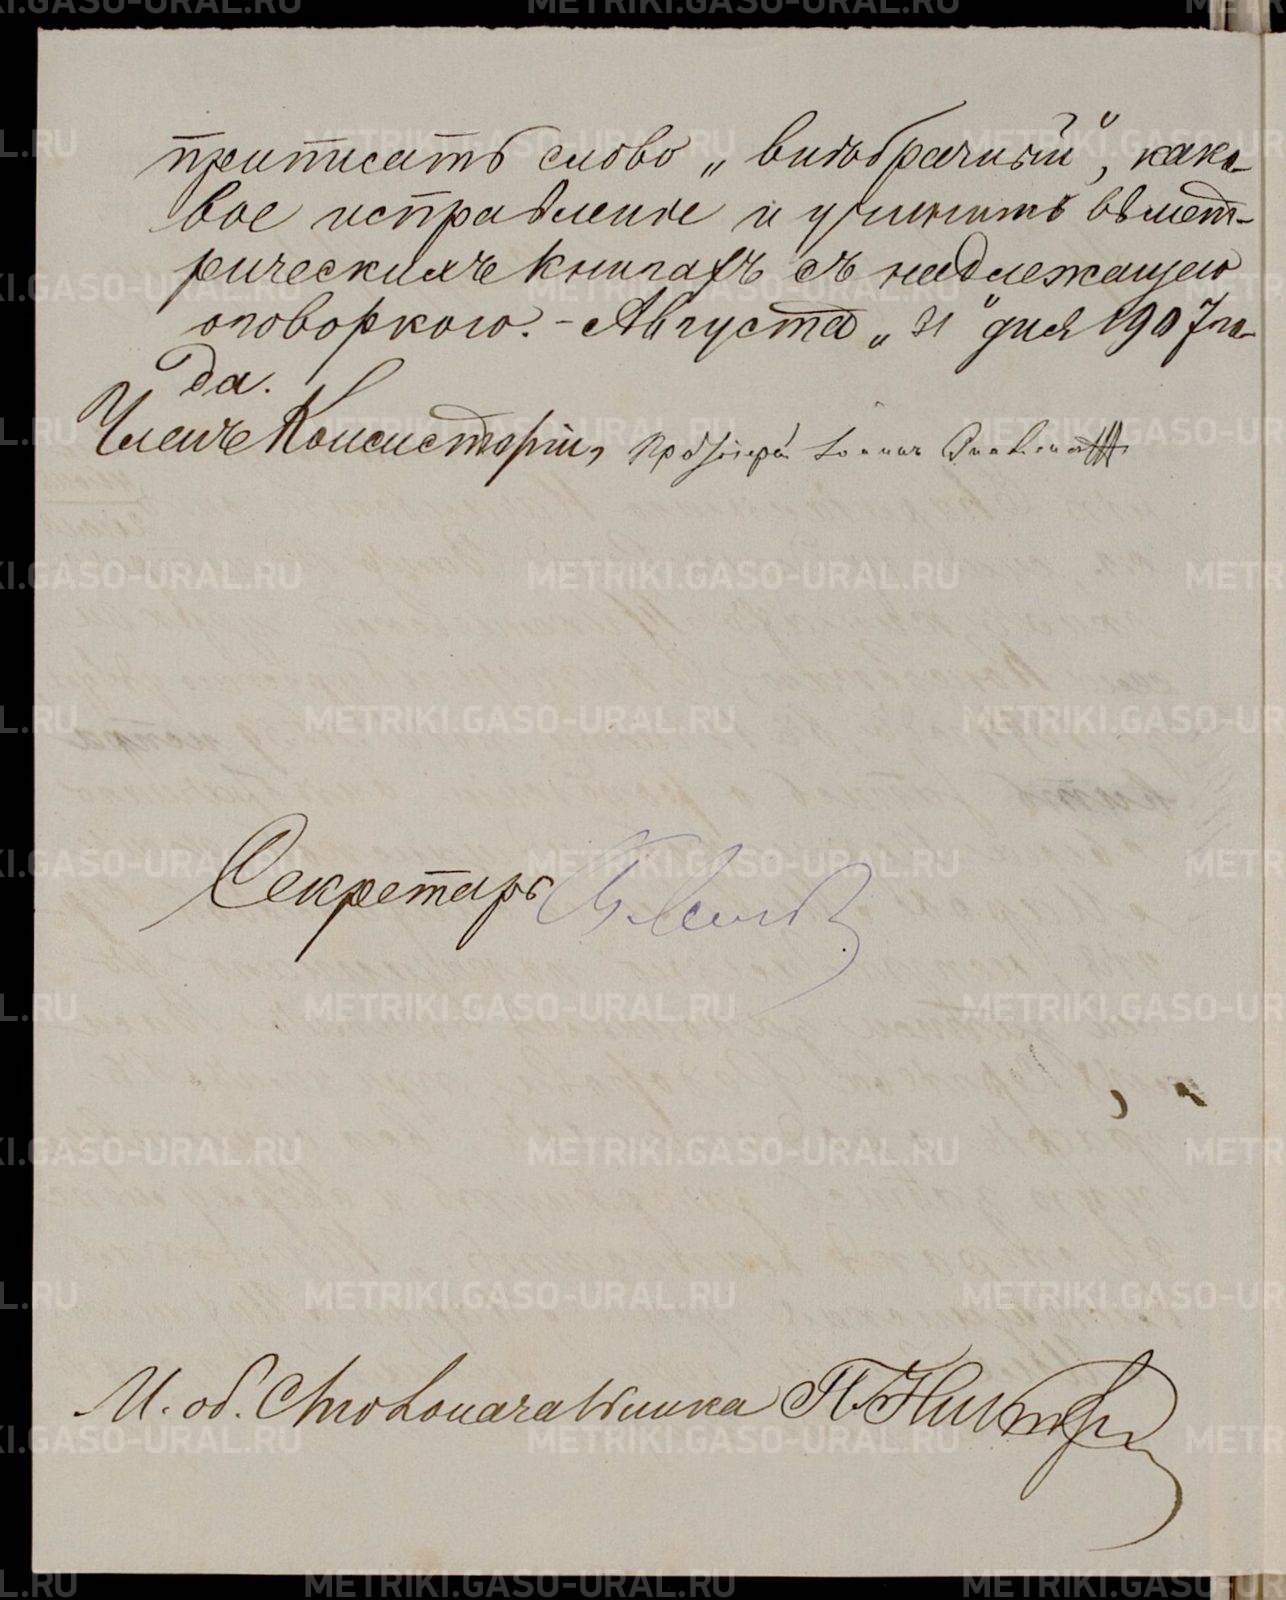 приписать слово „внѣбрачный", како-
вое исправленіе и учинить въ мет-
рическихъ книгахъ съ надлежащею
оговоркою. - Августа „31" дня 1907 го-
да.
Членъ Консисторіи, Протоіерей Іоаннъ
Секретарь
И. об. Столоначальника П.
METRIKI.GASO-URAL.RU